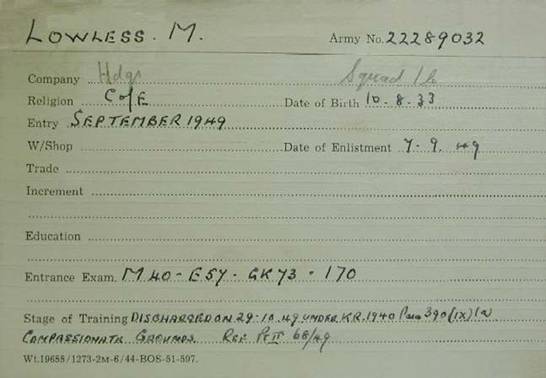 LOWLESS. M. Army No. 22289032
Company Hdqs Squad 16
Religion C of E Date of Birth 10.8.33
Entry SEPTEMBER 1949
W/Shop Date of Enlistment 7.9.49
Trade
Increment
Education
Entrance Exam. M.40 - E57 - GK73 - 170
Stage of Training DISCHARGED ON 29.10.49 UNDER KR. 1940 Para 390 (IX) (a)
COMPASSIONATE GROUNDS. REF. Pt II 68/49
Wt.19658/1273-2M-6/44-BOS-51-597.